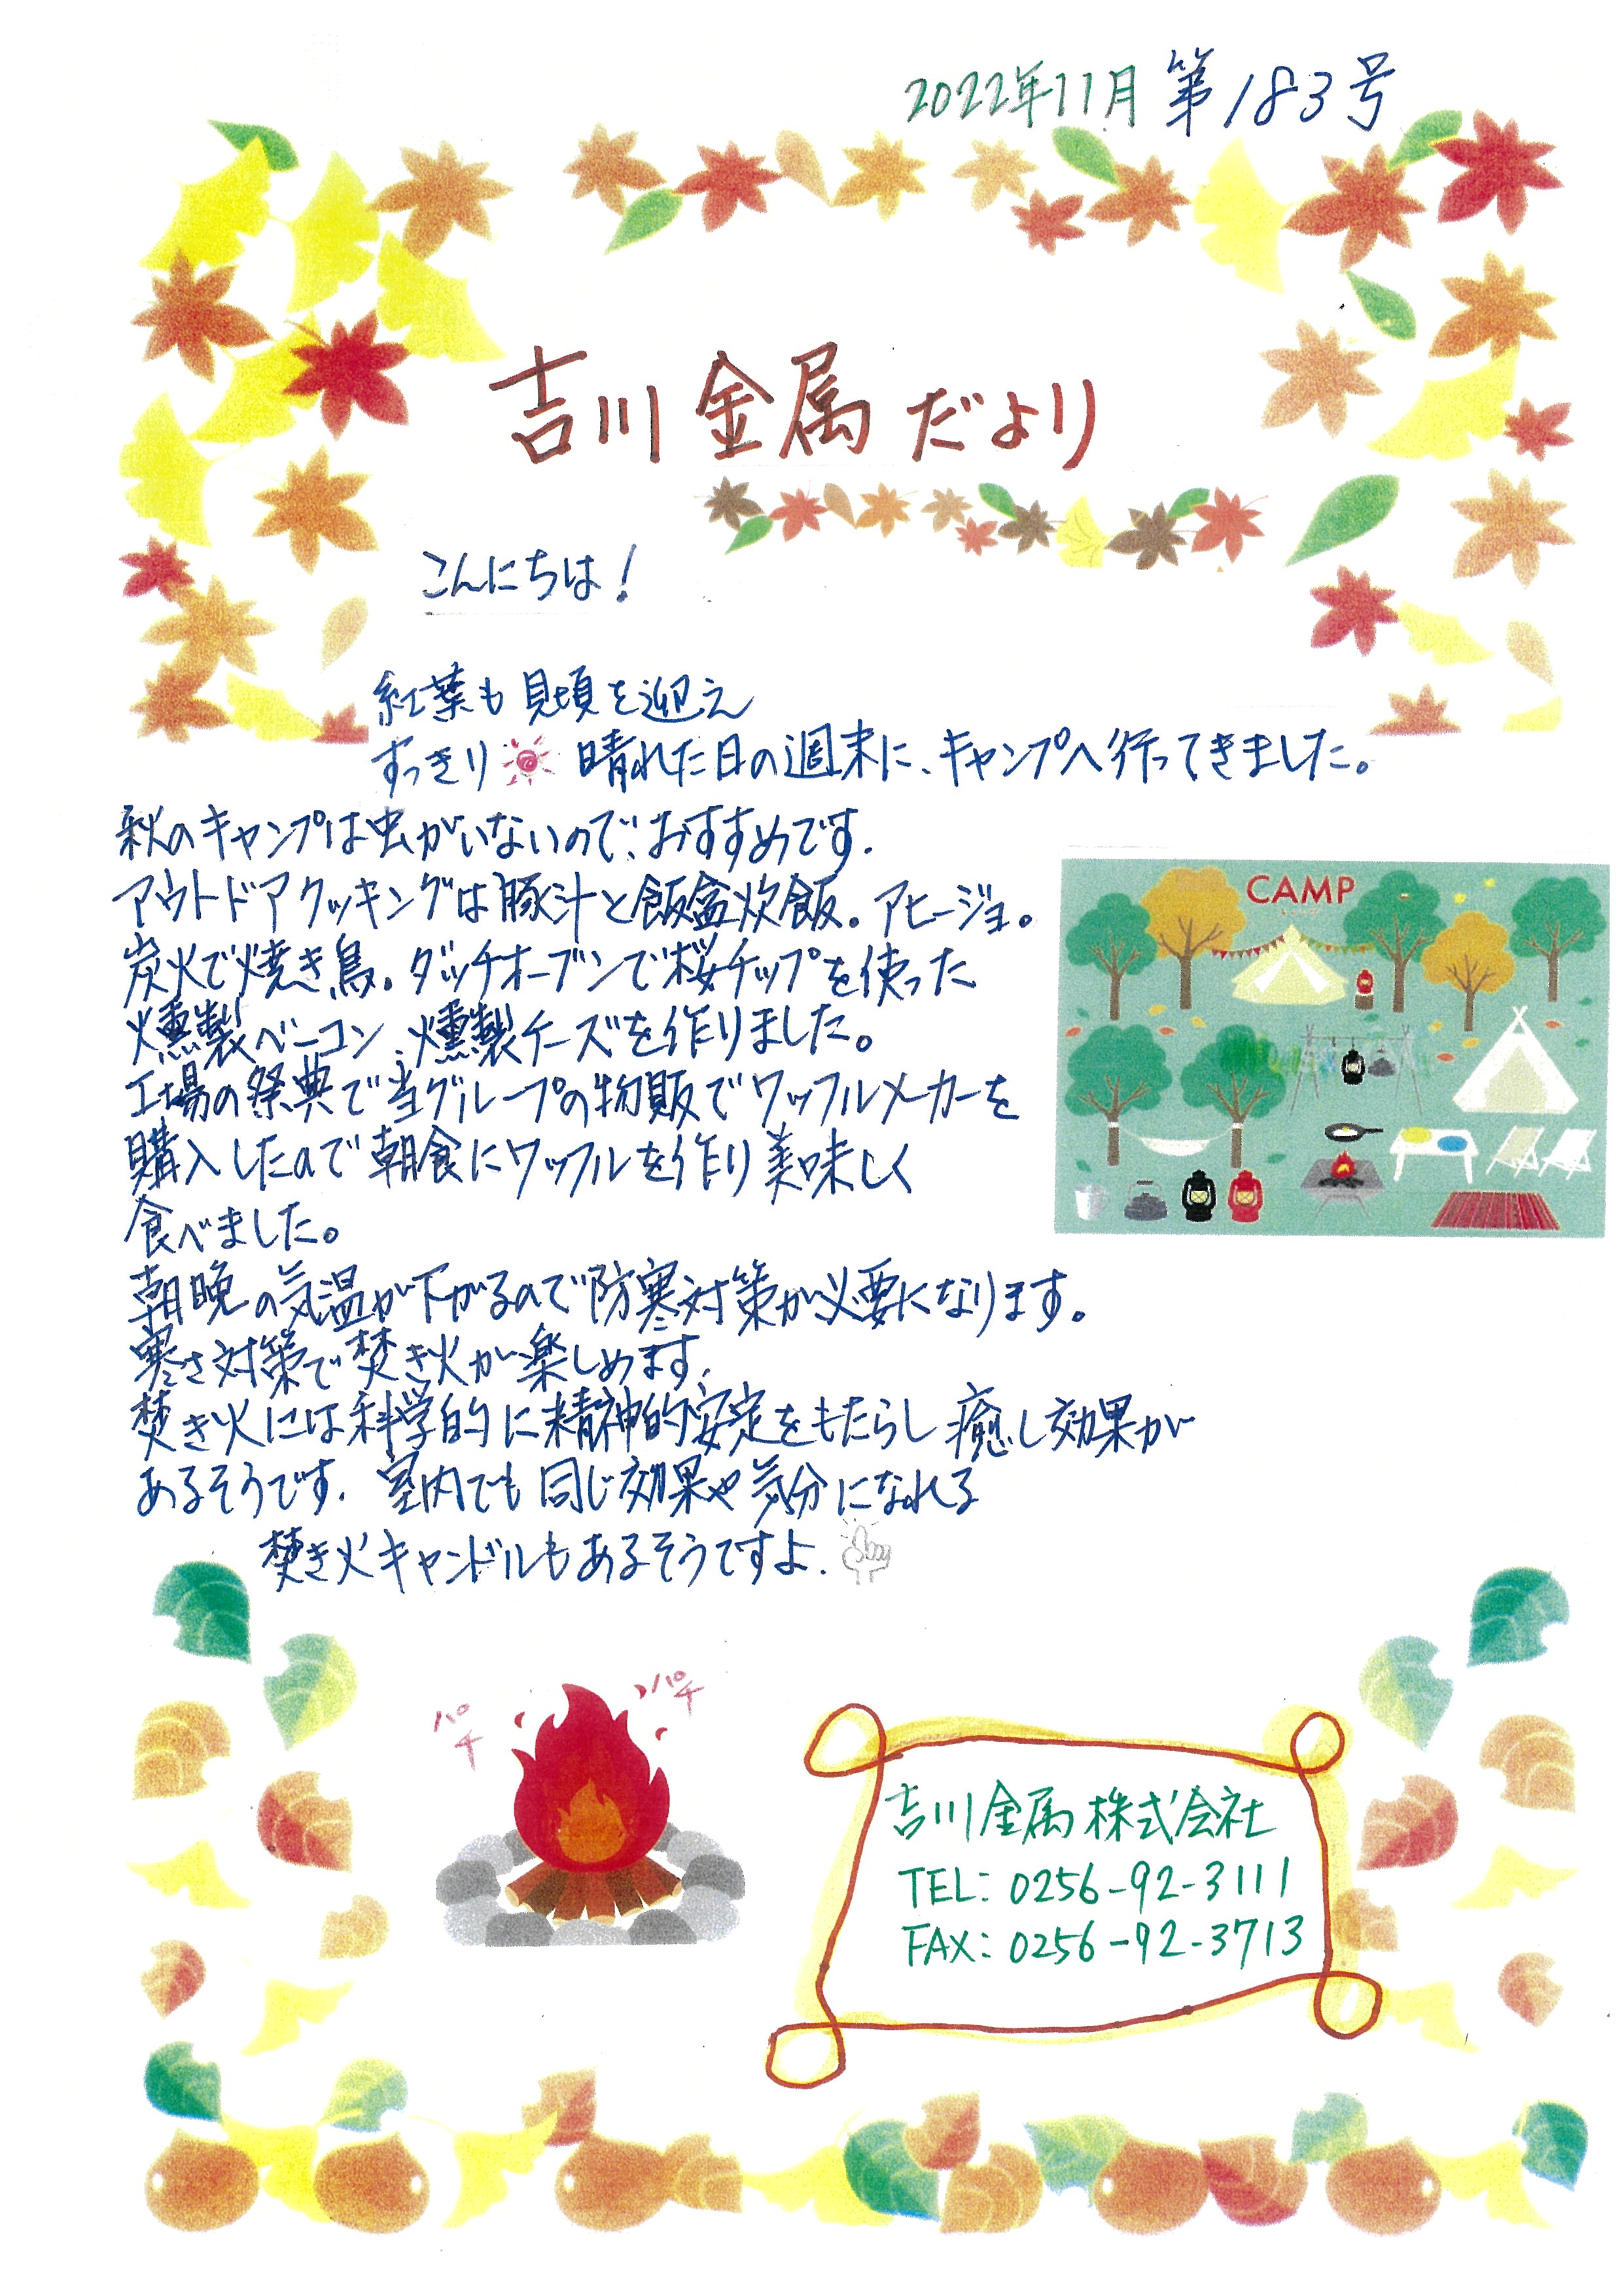 2022年11月 第183号
吉川金属だより
こんにちは!
紅葉も見頃を迎え
すっきり 晴れた日の週末に、キャンプへ行ってきました。
秋のキャンプは虫がいないので、おすすめです.
アウトドアクッキングは豚汁と飯盒炊飯。アヒージョ。
炭火で焼き鳥。ダッチオーブンで桜チップを使った
燻製ベーコン、燻製チーズを作りました。
工場の祭典で当グループの物販でワッフルメーカーを
購入したので朝食にワッフルを作り美味しく
食べました。
朝晩の気温が下がるので防寒対策が必要になります。
寒さ対策で焚き火が楽しめます.
焚き火には科学的に精神的安定をもたらし癒し効果が
あるそうです. 室内でも同じ効果や気分になれる
焚き火キャンドルもあるそうですよ.
CAMP
パチ
パチ
吉川金属株式会社
TEL: 0256-92-3111
FAX: 0256-92-3713